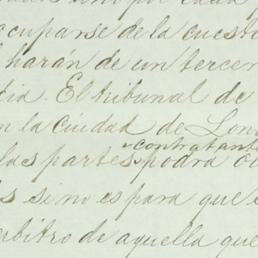 ocuparse de la cuesti
harán de un tercer
dia. El tribunal de
n la ciudad de Lon
contratant
las partes podrá o
s si no es para que e
arbitro de aquella que